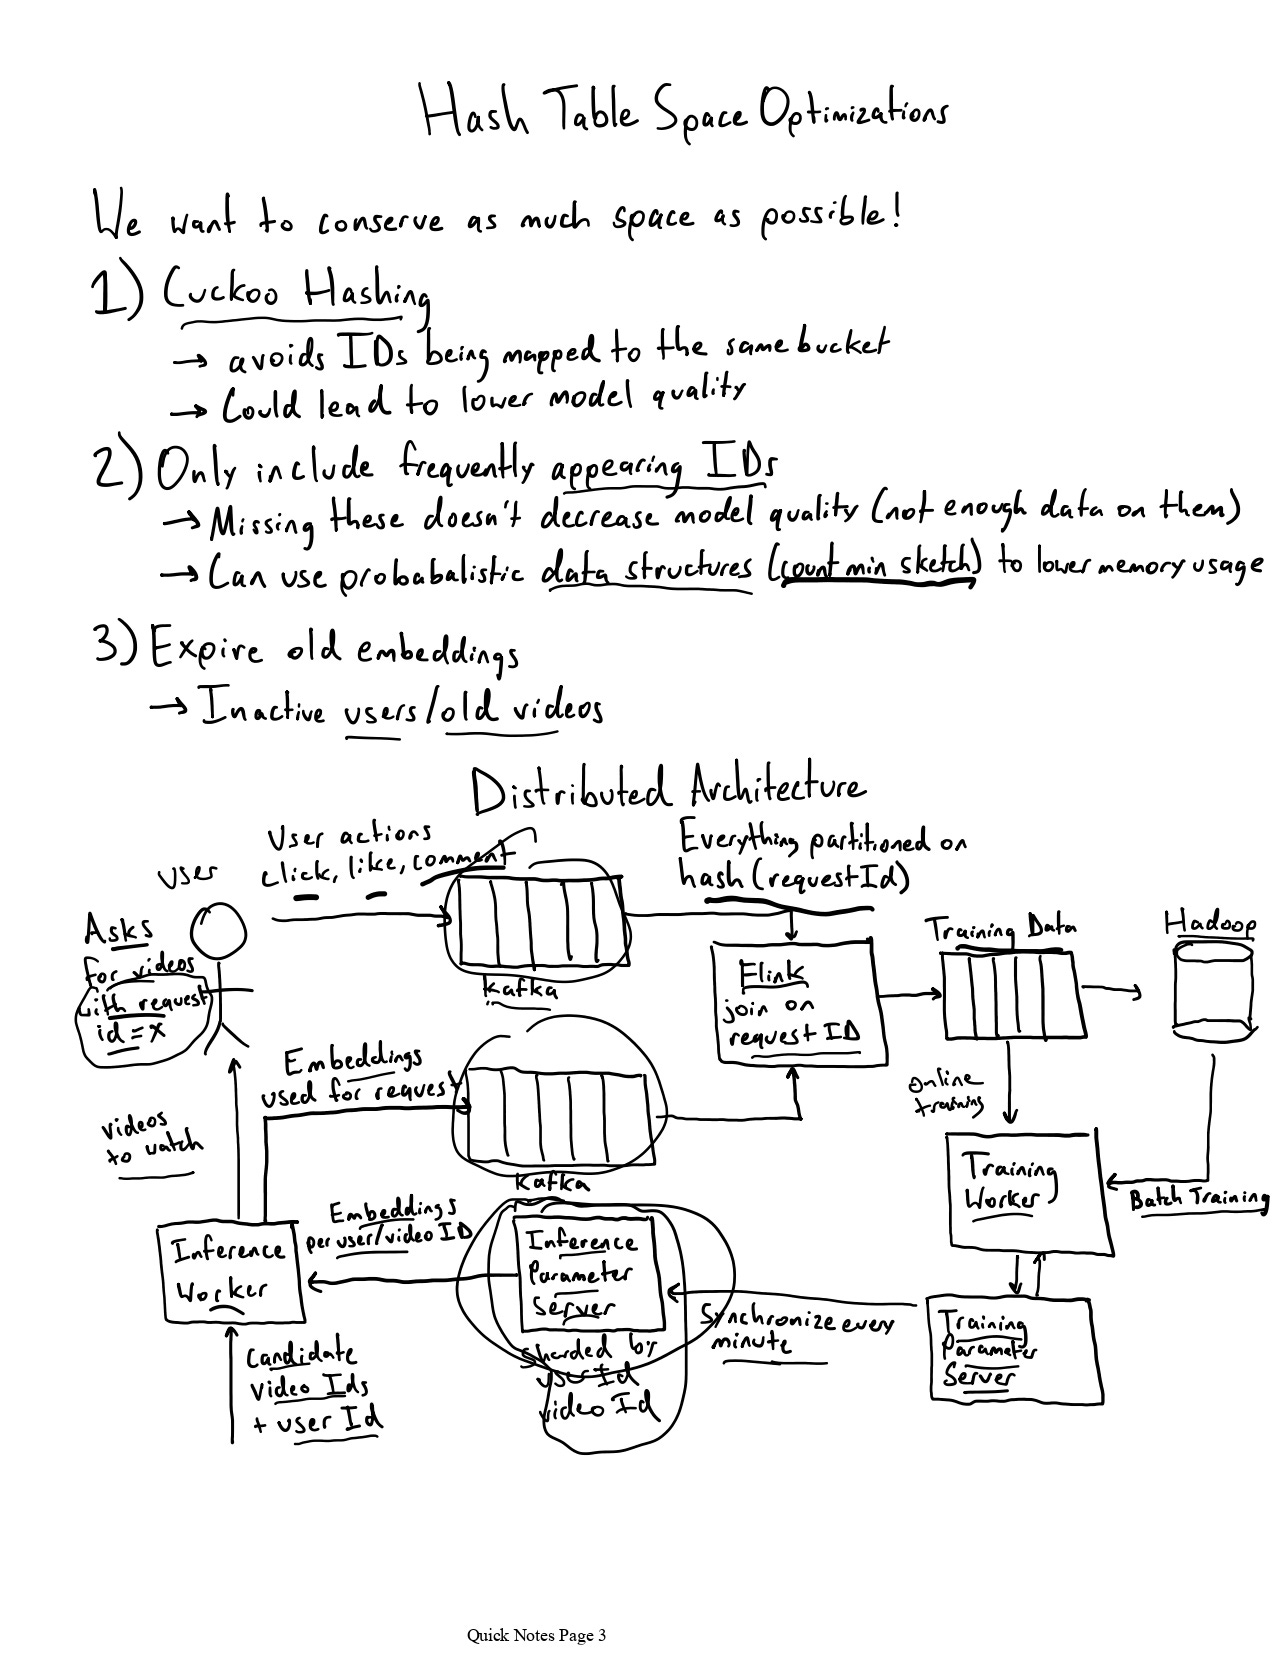 Hash Table Space Optimizations
We want to conserve as much space as possible!
1) Cuckoo Hashing
→ avoids IDs being mapped to the same bucket
→ Could lead to lower model quality
2) Only include frequently appearing IDs
→ Missing these doesn't decrease model quality (not enough data on them)
→ Can use probabalistic data structures (count min sketch) to lower memory usage
3) Expire old embeddings
→ Inactive users/old videos
Distributed Architecture
User actions
click, like, comment
Everything partitioned on
hash(requestId)
user
Asks
for videos
with request
id = x
Kafka
Flink
join on
request ID
Training Data
Hadoop
Embeddings
used for request
Kafka
online
training
videos
to watch
Training
Worker
Batch Training
Embeddings
per user/video ID
Inference
Worker
Inference
Parameter
Server
sharded by
user Id
video Id
Synchronize every
minute
Training
Parameter
Server
Candidate
video Ids
+ user Id
Quick Notes Page 3